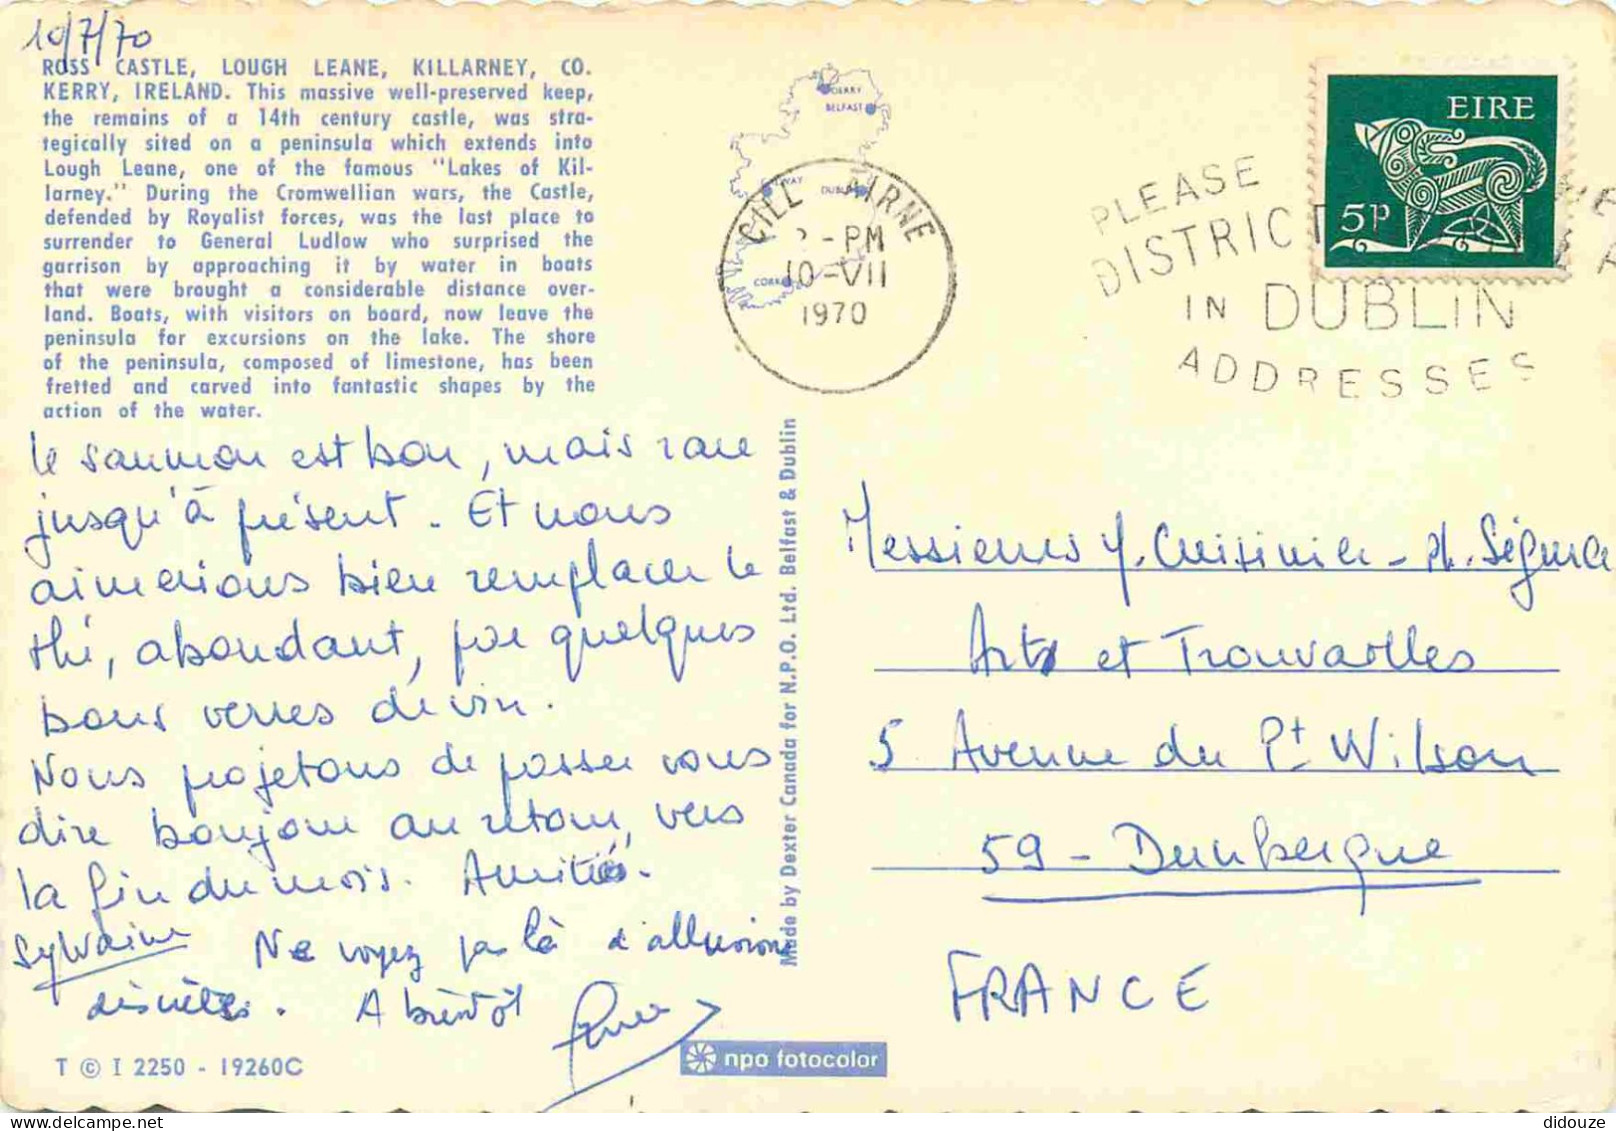 10/7/70
ROSS CASTLE, LOUGH LEANE, KILLARNEY, CO.
KERRY, IRELAND. This massive well-preserved keep,
the remains of a 14th century castle, was stra-
tegically sited on a peninsula which extends into
Lough Leane, one of the famous "Lakes of Kil-
larney." During the Cromwellian wars, the Castle,
defended by Royalist forces, was the last place to
surrender to General Ludlow who surprised the
garrison by approaching it by water in boats
that were brought a considerable distance over-
land. Boats, with visitors on board, now leave the
peninsula for excursions on the lake. The shore
of the peninsula, composed of limestone, has been
fretted and carved into fantastic shapes by the
action of the water.
le saumon est bon, mais rare
jusqu'à présent. Et nous
aimerions bien remplacer le
thé, abondant, par quelques
bons verres de vin.
Nous projetons de passer vous
dire bonjour au retour, vers
la fin du mois. Amitiés.
Sylvaine Ne voyez pas là d'allusions
discrètes. A bientôt
T © I 2250 - 19260C
npo fotocolor
Made by Dexter Canada for N.P.O. Ltd. Belfast & Dublin
DERRY
BELFAST
DUBLIN
CORK
CILL AIRNE
- PM
10-VII
1970
PLEASE
DISTRICT
IN DUBLIN
ADDRESSES
EIRE
5p
Messieurs Y. Cuisinier - Ph. Ségura
Arts et Trouvailles
5 Avenue du Pt Wilson
59 - Dunkerque
FRANCE
didouze